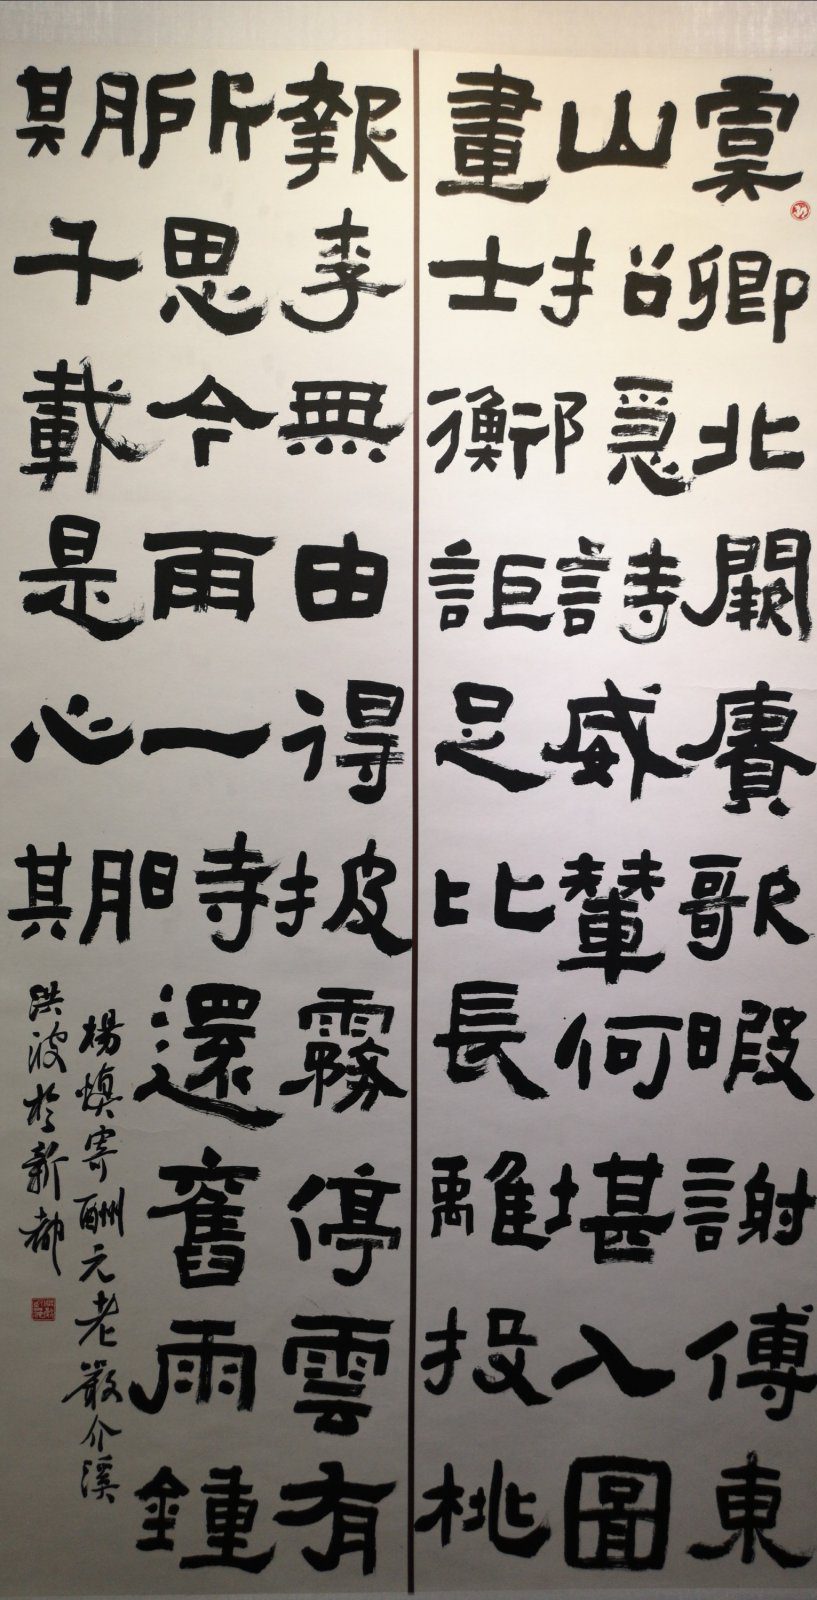 虞卿北闕賡歌暇謝傅東
山招隱詩威輦何堪入圖
畫士衡詎足比長離投桃
報李無由得披霧停雲有
所思今雨一時還舊雨鍾
期千載是心期
楊慎寄酬元老嚴介溪
洪波於新都